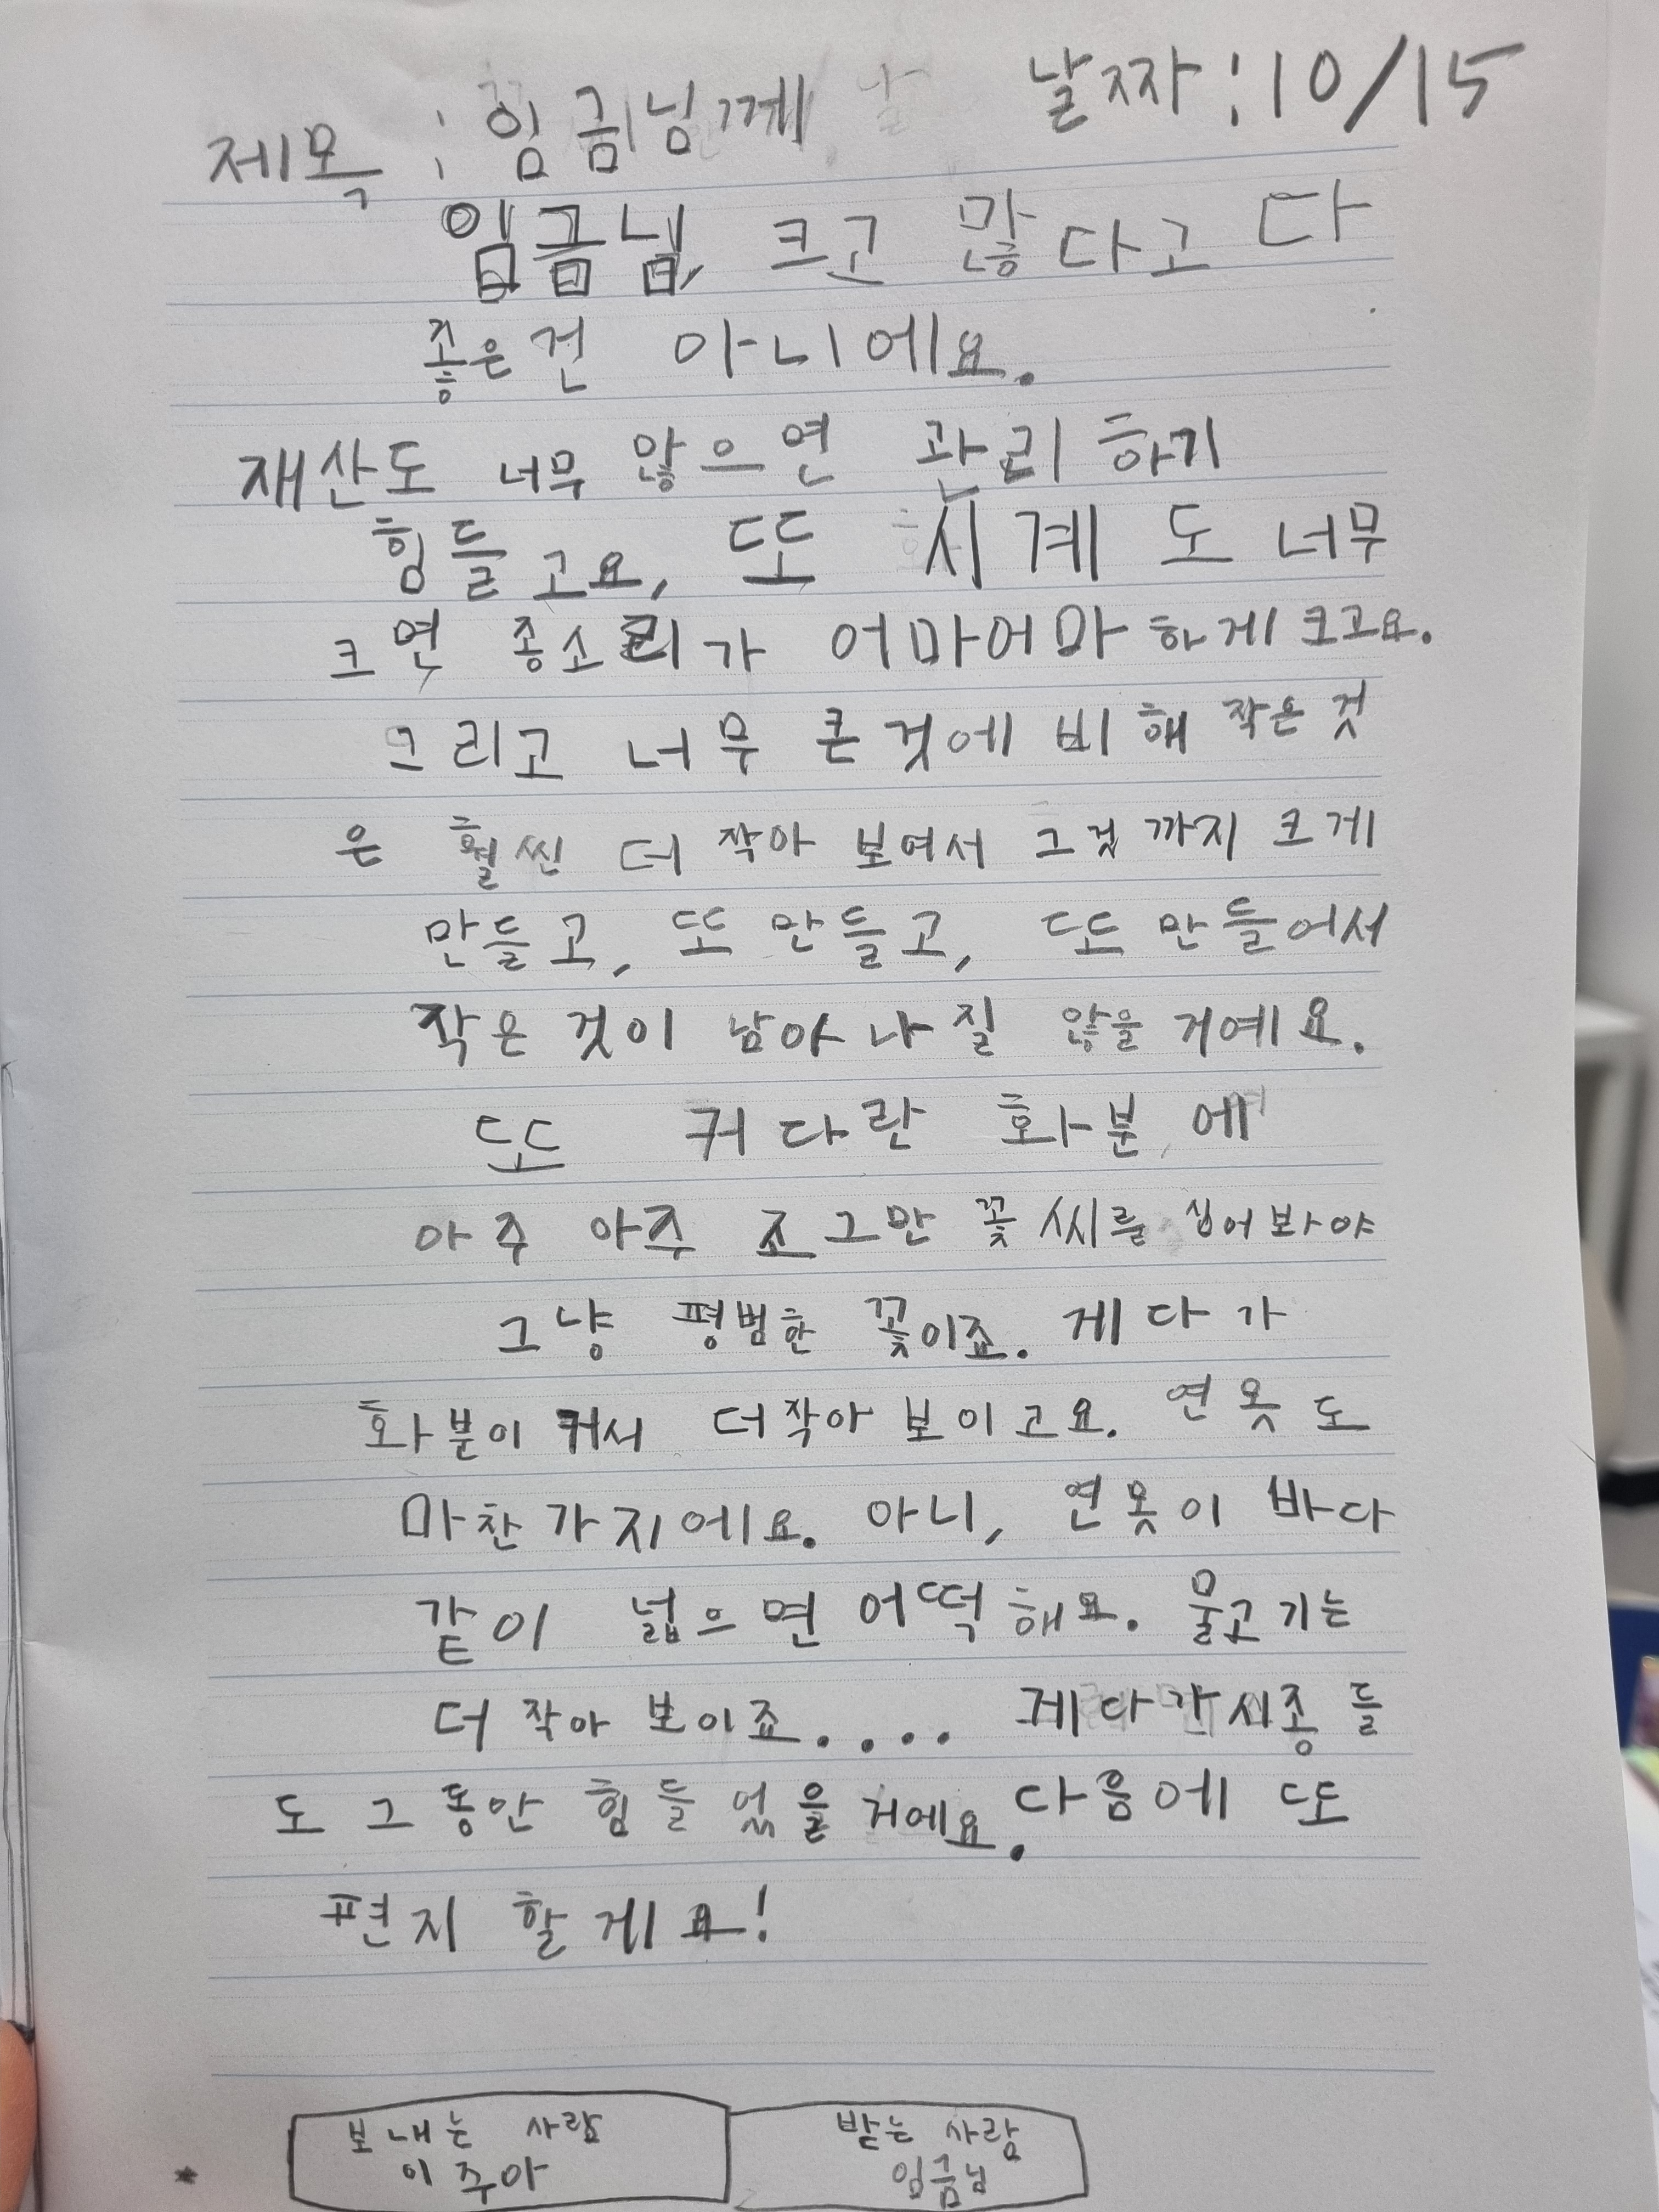 제목 : 임금님께 날짜 : 10/15
임금님, 크고 많다고 다
좋은건 아니에요.
재산도 너무 많으면 관리 하기
힘들고요, 또 시계도 너무
크면 종소리가 어마어마하게 크고요.
그리고 너무 큰것에 비해 작은 것
은 훨씬 더 작아 보여서 그것까지 크게
만들고, 또 만들고, 또 만들어서
작은 것이 남아나질 않을 거예요.
또 커다란 화분에
아주 아주 조그만 꽃씨를 심어봐야
그냥 평범한 꽃이죠. 게다가
화분이 커서 더작아 보이고요. 연못도
마찬가지에요. 아니, 연못이 바다
같이 넓으면 어떡해요. 물고기는
더 작아 보이죠.... 게다가 시종들
도 그동안 힘들었을 거에요. 다음에 또
편지 할게요!
보내는 사람 받는 사람
이주아 임금님